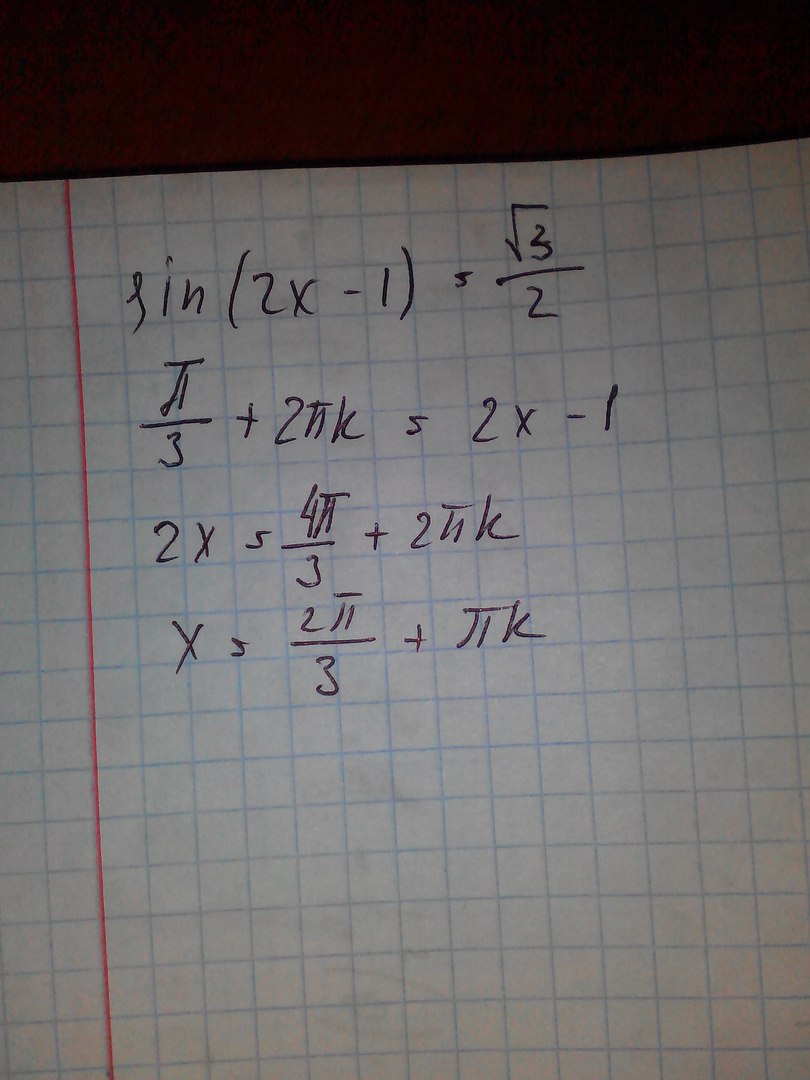 sin(2x - 1) = √3/2
π/3 + 2πk = 2x - 1
2x = 4π/3 + 2πk
x = 2π/3 + πk